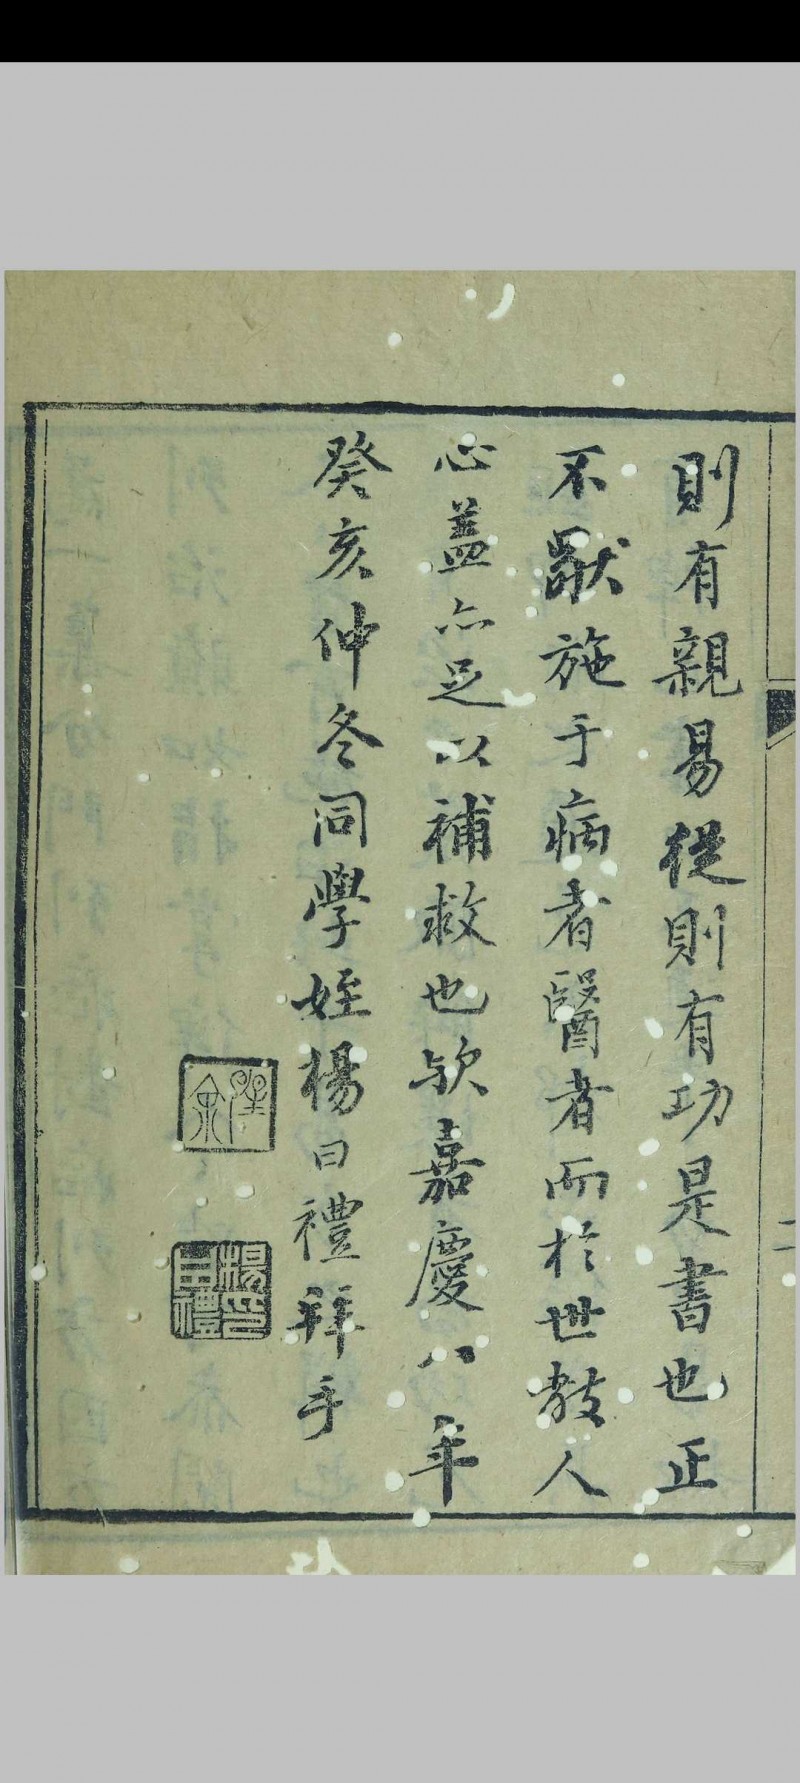 則有親易從則有功是書也正
不獣施于病者醫者而於世教人
心蓋亦足以補救也欤嘉慶八年
癸亥仲冬同學姪楊曰禮拜手
楊曰禮印
二